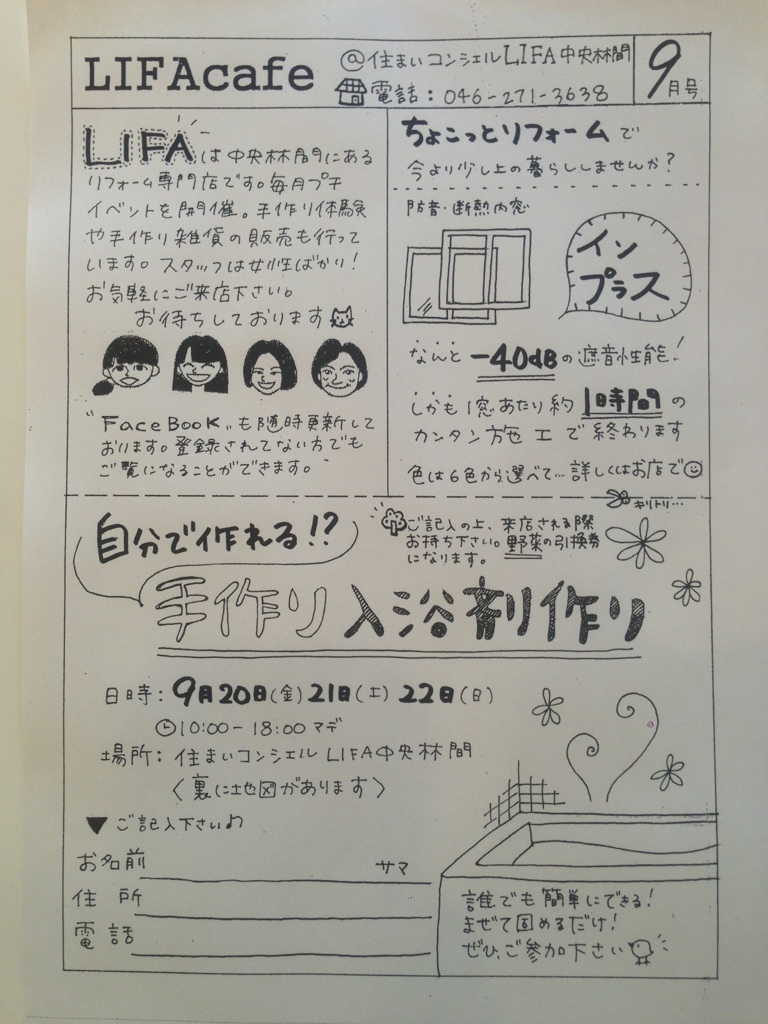 LIFAcafe
@住まいコンシェルLIFA中央林間
電話：046-271-3638
9月号
LIFAは中央林間にある
リフォーム専門店です。毎月プチ
イベントを開催。手作り体験
や手作り雑貨の販売も行って
います。スタッフは女性ばかり！
お気軽にご来店下さい。
お待ちしております
"FaceBook"も随時更新して
おります。登録されてない方でも
ご覧になることができます。
ちょこっとリフォームで
今より少し上の暮らししませんか？
防音・断熱内窓
イン
プラス
なんと -40dBの遮音性能！
しかも1窓あたり約1時間の
カンタン施工で終わります
色は6色から選べて…詳しくはお店で
キリトリ…
自分で作れる!?
ご記入の上、来店される際
お持ち下さい。野菜の引換券
になります。
手作り入浴剤作り
日時：9月20日(金)21日(土)22日(日)
10:00-18:00マデ
場所：住まいコンシェルLIFA中央林間
〈裏に地図があります〉
▼ご記入下さい♪
お名前 サマ
住所
電話
誰でも簡単にできる！
まぜて固めるだけ！
ぜひ、ご参加下さい